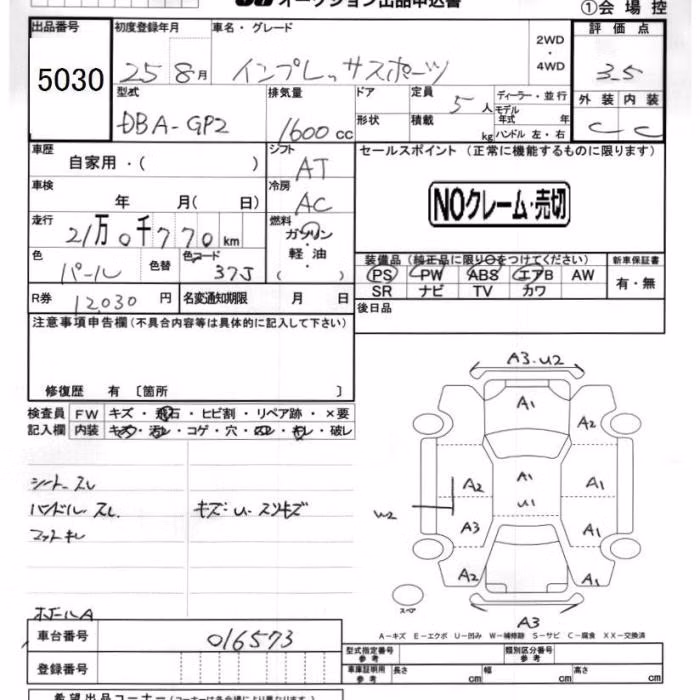 オークション出品申込書
①会場控
出品番号 初度登録年月 車名・グレード 2WD・4WD 評価点
5030 25 8月 インプレッサスポーツ 3.5
型式 排気量 ドア 定員 5人 ディーラー・並行 外装 内装
DBA-GP2 1600cc 形状 積載 kg モデル年式 年 C C
ハンドル 左・右
車歴 自家用・( ) シフト AT セールスポイント (正常に機能するものに限ります)
車検 年 月( 日) 冷房 AC NOクレーム・売切
走行 21万0千770km 燃料 ガソリン・軽油 ( )
色 パール 色替 色コード 37J
装備品(純正品に限り○をつけてください) 新車保証書
PS PW ABS エアB AW 有・無
SR ナビ TV カワ
R券 12,030円 名変通知期限 月 日 後日品
注意事項申告欄(不具合内容等は具体的に記入して下さい)
修復歴 有 〔箇所 〕
検査員 FW キズ・飛石・ヒビ割・リペア跡・×要
記入欄 内装 キズ・汚レ・コゲ・穴・スレ・キレ・破レ
シート スレ
ハンドル スレ キズ・U・スリキズ
フロアマット キレ
ホイールA
A3・U2
A1
A2
A2 A1 A1
U1
W2
A3 A1
A2 A1
スペア
A3
A-キズ E-エクボ U-凹み W-補修跡 S-サビ C-腐食 XX-交換済
車台番号 016573
登録番号
型式指定番号 参考 類別区分番号 参考
車庫証明用 参考 長さ cm 幅 cm 高さ cm
希望出品コーナー(コーナーは各会場により異なります)